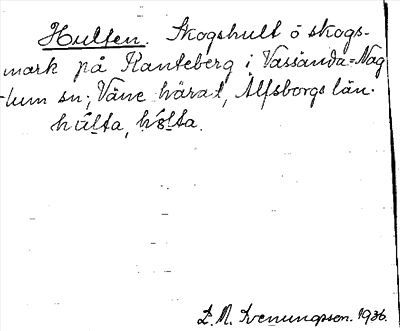 Hulten. Skogshult ö skogs-
mark på Ranteberg i Vassända=Nag
-lum sn; Väne härad, Älfsborgs län.
hu̇lta, hȯlta.
L. M. Svenungsson. 1936.